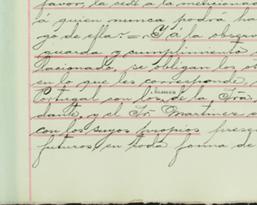 favor, la cede á la mencionada
á quien nunca podrá ha
go de ella. = Y á la observ
guarda y cumplimiento
lacionado, se obligan los ot
en lo que les corresponde,
Portugal con los bienes de la Sra.
dante, y el Sr. Martinez
con los suyos propios prese
futuros en toda forma de